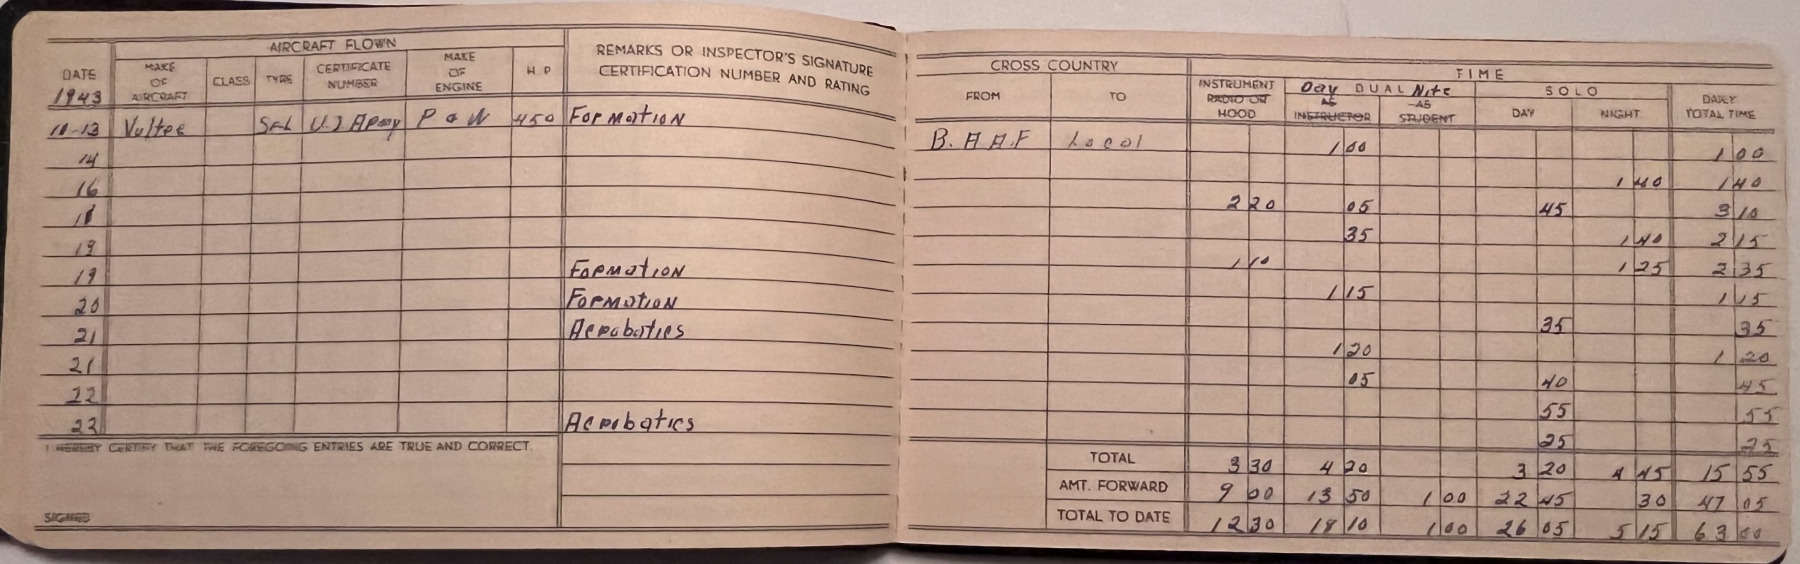 AIRCRAFT FLOWN
DATE MAKE OF AIRCRAFT CLASS TYPE CERTIFICATE NUMBER MAKE OF ENGINE H P REMARKS OR INSPECTOR'S SIGNATURE CERTIFICATION NUMBER AND RATING
1943
10-13 Vultee U.S. Army P & W 450 Formation
14
16
18
19
19 Formation
20 Formation
21 Acrobatics
21
22
23 Acrobatics
I HEREBY CERTIFY THAT THE FOREGOING ENTRIES ARE TRUE AND CORRECT.
SIGNED
CROSS COUNTRY TIME
FROM TO INSTRUMENT RADIO OR HOOD Day DUAL Nite AS INSTRUCTOR AS STUDENT SOLO DAY NIGHT DAILY TOTAL TIME
B.A.A.F Local 1 00 1 00
1 40 1 40
2 20 05 45 3 10
35 1 40 2 15
1 10 1 25 2 35
1 15 1 15
35 35
1 20 1 20
05 40 45
55 55
25 25
TOTAL 3 30 4 20 3 20 4 45 15 55
AMT. FORWARD 9 00 13 50 1 00 22 45 30 47 05
TOTAL TO DATE 12 30 18 10 1 00 26 05 5 15 63 00